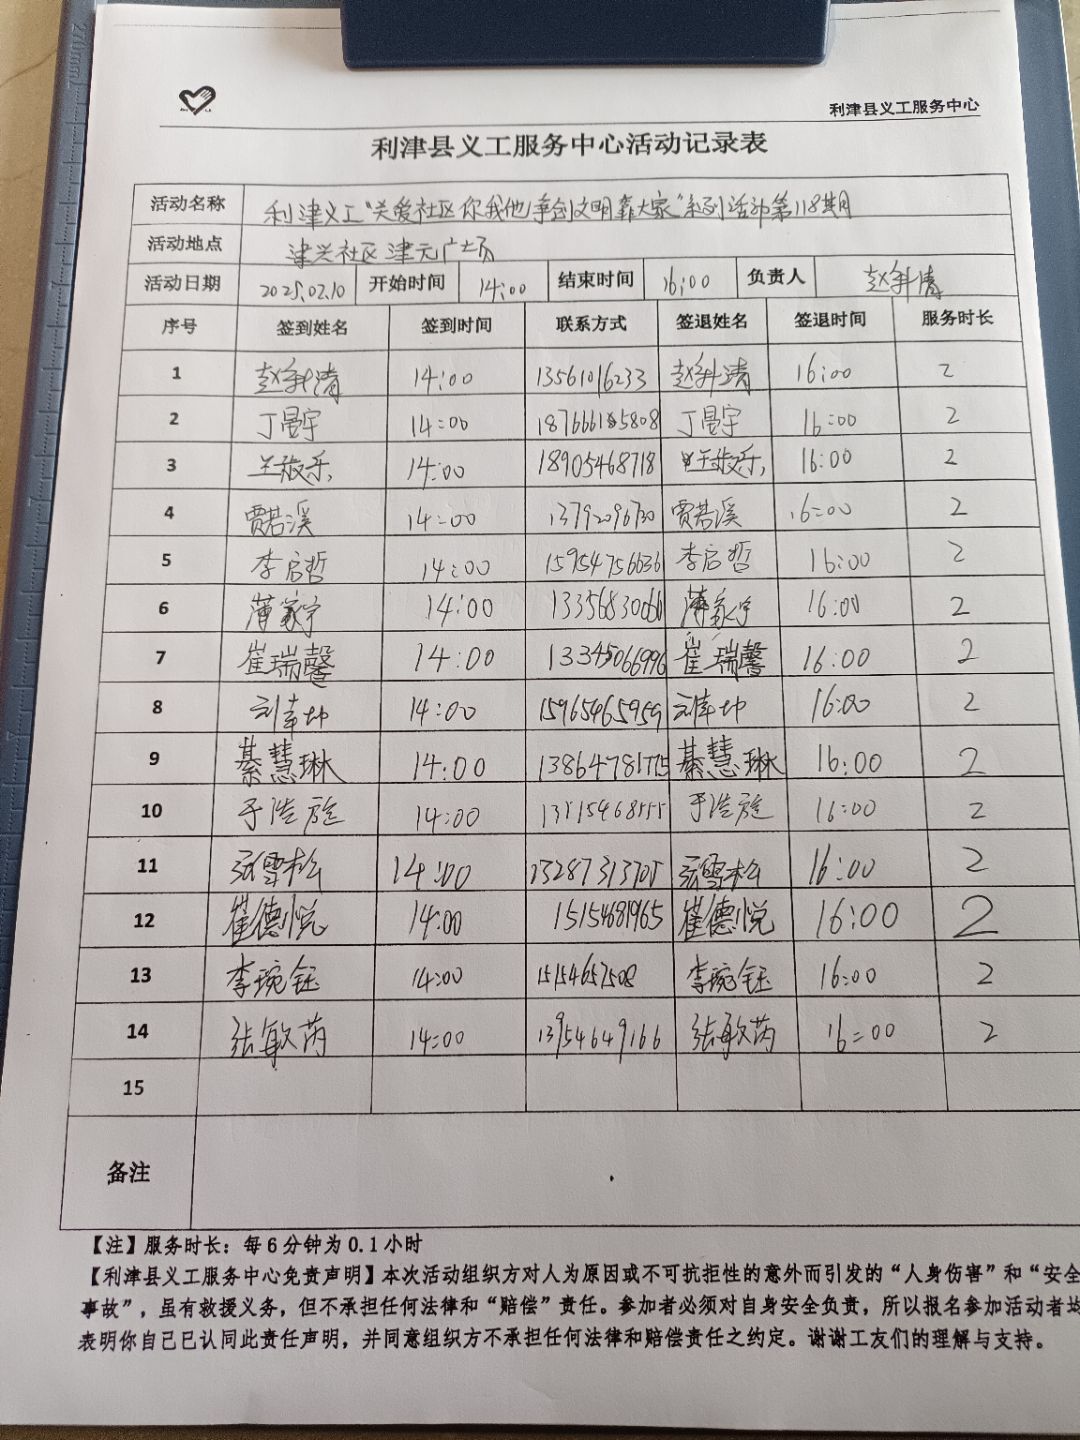 利津县义工服务中心
利津县义工服务中心活动记录表
活动名称 利津义工“关爱社区你我他,争创文明靠大家”系列活动第118期
活动地点 津兴社区津元广场
活动日期 2025.02.10 开始时间 14:00 结束时间 16:00 负责人 赵新清
序号 签到姓名 签到时间 联系方式 签退姓名 签退时间 服务时长
1 14:00 13561016233 16:00 2
2 丁晏宇 14:00 丁晏宇 16:00 2
3 14:00 18905468718 16:00 2
4 贾若溪 14:00 13792096730 贾若溪 16:00 2
5 李启哲 14:00 15954756636 李启哲 16:00 2
6 薄家宇 14:00 13356830066 薄家宇 16:00 2
7 崔瑞馨 14:00 13345066996 崔瑞馨 16:00 2
8 14:00 15965465959 16:00 2
9 綦慧琳 14:00 13864781775 綦慧琳 16:00 2
10 14:00 16:00 2
11 张雪松 14:00 13287313705 张雪松 16:00 2
12 崔德悦 14:00 15154681965 崔德悦 16:00 2
13 李琬钰 14:00 15154657508 李琬钰 16:00 2
14 张敏芮 14:00 13954649166 张敏芮 16:00 2
15
备注
【注】服务时长：每6分钟为0.1小时
【利津县义工服务中心免责声明】本次活动组织方对人为原因或不可抗拒性的意外而引发的“人身伤害”和“安全
事故”，虽有救援义务，但不承担任何法律和“赔偿”责任。参加者必须对自身安全负责，所以报名参加活动者均
表明你自己已认同此责任声明，并同意组织方不承担任何法律和赔偿责任之约定。谢谢工友们的理解与支持。